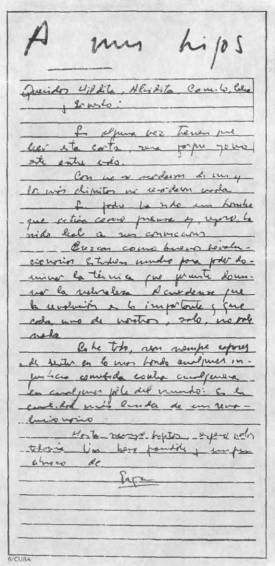 A mis hijos
Queridos Hildita, Aleidita, Camilo, Celia
y Ernesto:
Si alguna vez tienen que
leer esta carta, será porque yo no
esté entre uds.
Casi no se acordarán de mi y
los más chiquitos no recordarán nada.
Su padre ha sido un hombre
que actúa como piensa y, seguro, ha
sido leal a sus convicciones.
Crezcan como buenos revolu-
cionarios. Estudien mucho para poder do-
minar la técnica que permite domi-
nar la naturaleza. Acuérdense que
la revolución es lo importante y que
cada uno de nosotros, solo, no vale
nada.
Sobre todo, sean siempre capaces
de sentir en lo más hondo cualquier in-
justicia cometida contra cualquiera
en cualquier parte del mundo. Es la
cualidad más linda de un revo-
lucionario.
Hasta siempre hijitos, espero verlos
todavía. Un beso grandote y un gran
abrazo de
Papá